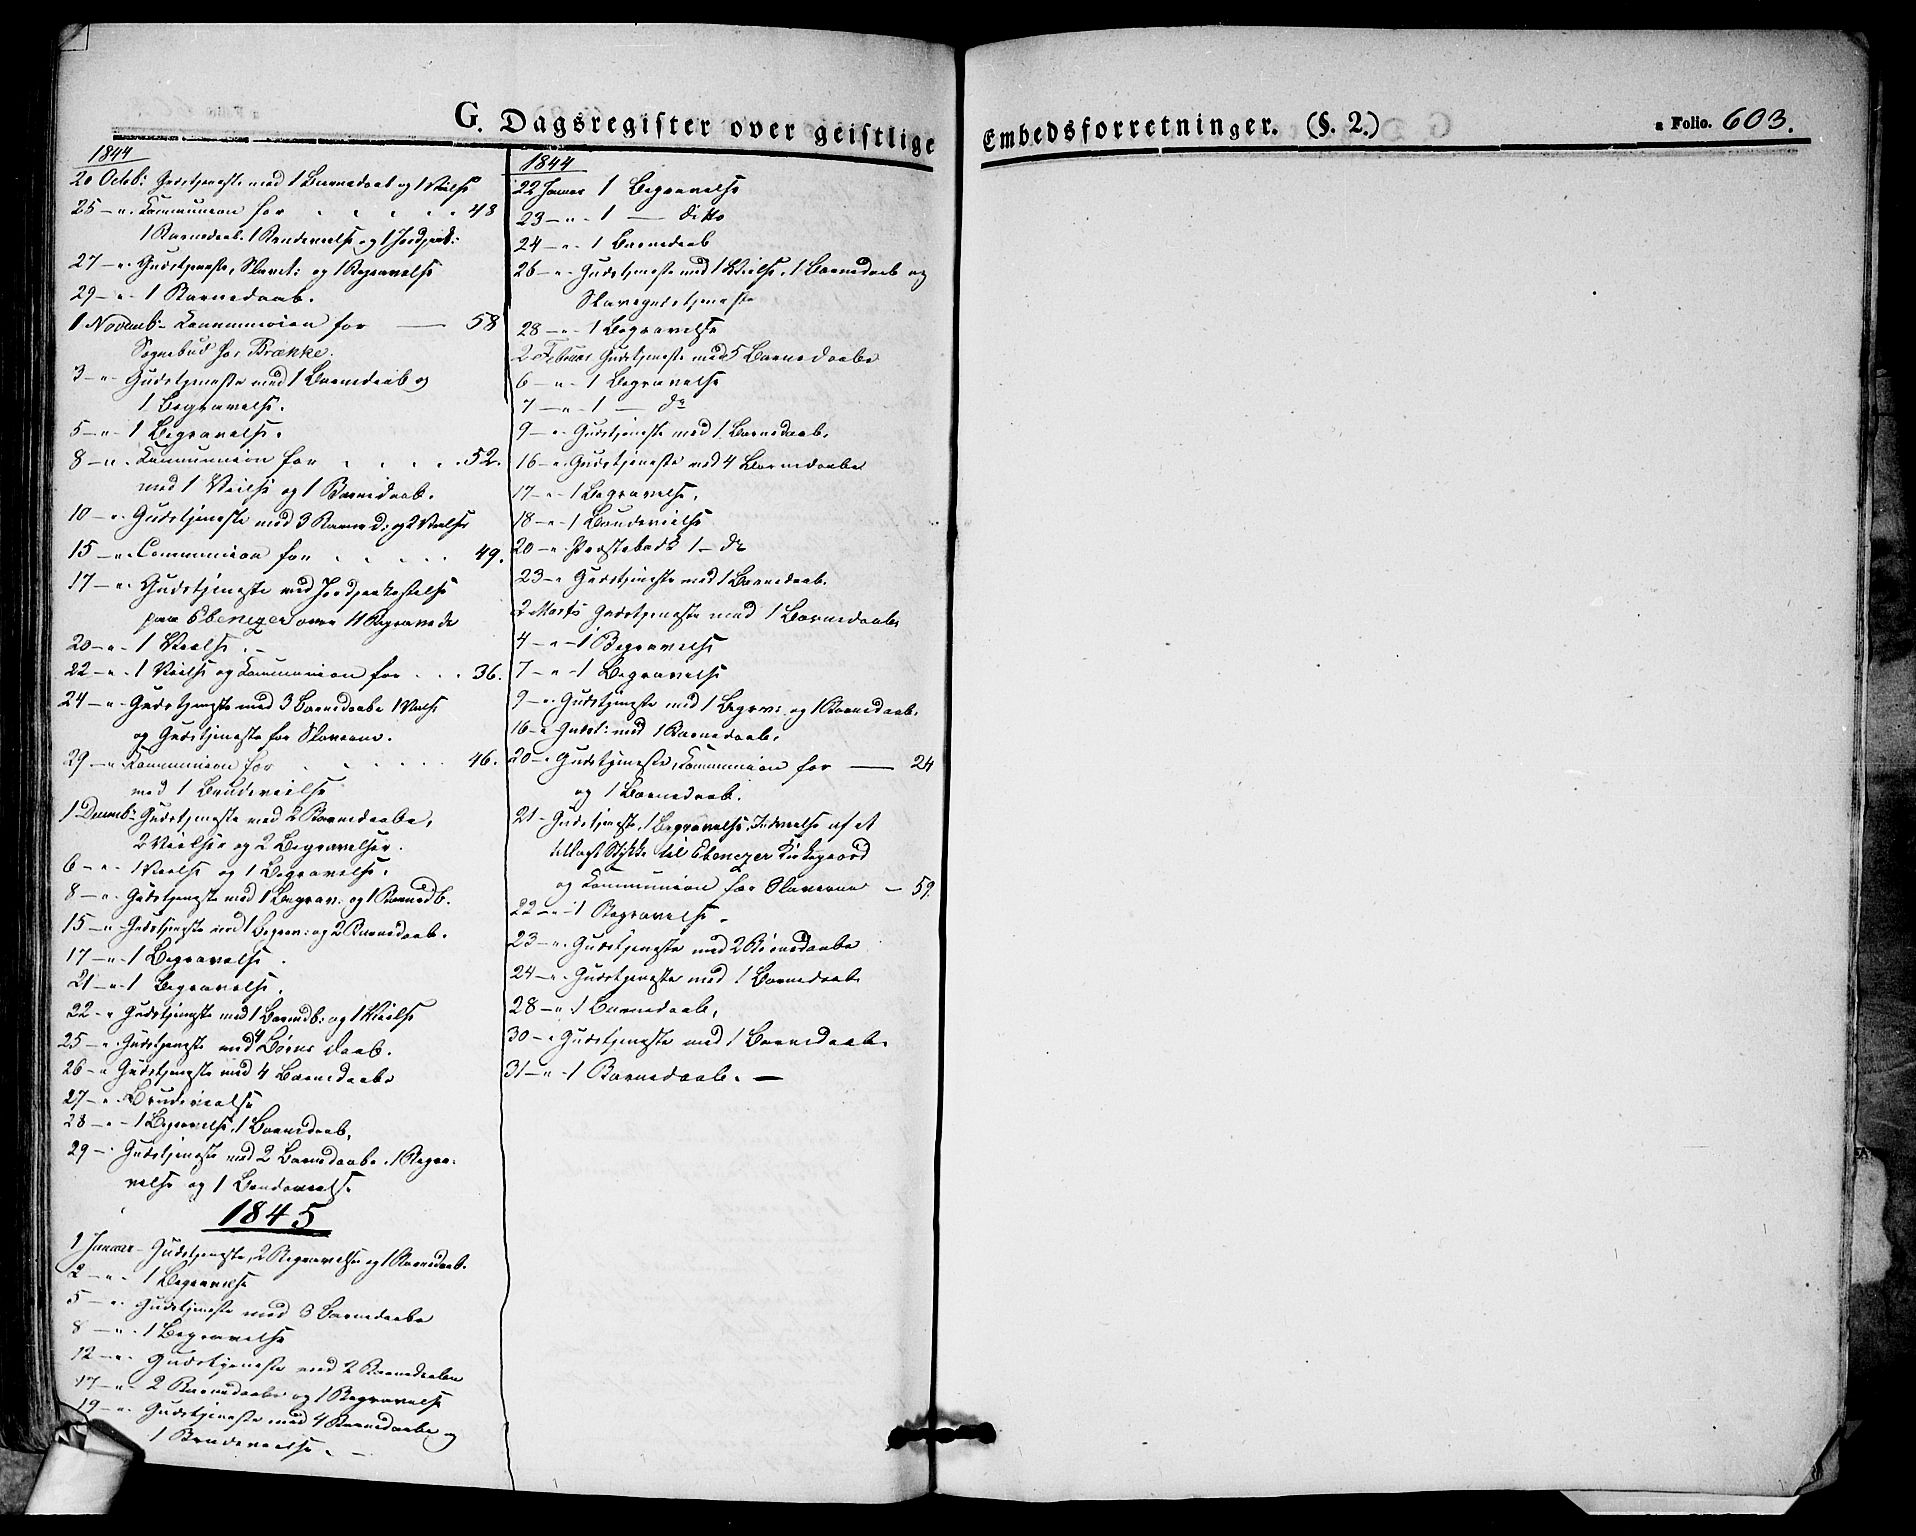 G. Dagsregister over geistlige Embedsforretninger. (§. 2.)
a Folio. 603.
1844
20 Octob: Gudstjeneste med 1 Barnedaab og 1 Vielse
25 — „ Communion for . . . . . 48
1 Barnedaab, 1 Brudevielse og 1 Jordpaak:
27 — „ Gudstjeneste, Slavet: og 1 Begravelse
29 — „ 1 Barnedaab.
1 Novemb: Communion for — 58
Sognebud hos Brække.
3 — „ Gudstjeneste med 1 Barnedaab og
1 Begravelse.
5 — „ 1 Begravelse.
8 — „ Communion for . . . . 52.
med 1 Vielse og 1 Barnedaab.
10 — „ Gudstjeneste med 3 Barned: og 2 Vielser
15 — „ Communion for . . . . 49.
17 — „ Gudstjeneste med Jordpaakastelse
paa Ebenezer over 11 Begravede
20 — „ 1 Vielse. —
22 — „ 1 Vielse og Communion for . . . 36.
24 — „ Gudstjeneste med 3 Barnedaabe 1 Vielse
og Gudstjeneste for Slaverne.
29 — „ Communion for . . . . . . 46.
med 1 Brudevielse
1 Decemb: Gudstjeneste med 2 Barnedaabe,
2 Vielser og 2 Begravelser.
6 — „ 1 Vielse og 1 Begravelse.
8 — „ Gudstjeneste med 1 Begrav. og 1 Barnedb.
15 — „ Gudstjeneste med 1 Begrav: og 2 Barnedaab.
17 — „ 1 Begravelse.
21 — „ 1 Begravelse.
22 — „ Gudstjeneste med 1 Barnedb: og 1 Vielse
25 — „ Gudstjeneste med 4 Børns Daab.
26 — „ Gudstjeneste med 4 Barnedaabe
27 — „ Brudevielse
28 — „ 1 Begravelse, 1 Barnedaab,
29 — „ Gudstjeneste med 2 Barnedaabe, 1 Begra-
velse og 1 Brudevielse
1845
1 Januar — Gudstjeneste, 2 Begravelse og 1 Barnedaab.
2 — „ 1 Begravelse
5 — „ Gudstjeneste med 3 Barnedaabe
8 — „ 1 Begravelse
12 — „ Gudstjeneste med 2 Barnedaabe
17 — „ 2 Barnedaabe og 1 Begravelse
19 — „ Gudstjeneste med 4 Barnedaabe og
1 Brudevielse. —
1844
22 Januar 1 Begravelse
23 — „ 1 — ditto
24 — „ 1 Barnedaab
26 — „ Gudstjeneste med 1 Vielse, 1 Barnedaab og
Slavegudstjeneste
28 — „ 1 Begravelse
2 Februar Gudstjeneste med 5 Barnedaabe
6 — „ 1 Begravelse
7 — „ 1 — do
9 — „ Gudstjeneste med 1 Barnedaab.
16 — „ Gudstjeneste med 4 Barnedaabe
17 — „ 1 Begravelse,
18 — „ 1 Brudevielse
20 — „ 1 — do
23 — „ Gudstjeneste med 1 Barnedaab.
2 Marts Gudstjeneste med 1 Barnedaab
4 — „ 1 Begravelse
7 — „ 1 Begravelse
9 — „ Gudstjeneste med 1 Begrav: og 1 Barnedaab.
16 — „ Gudst: med 1 Barnedaab.
20 — „ Gudstjeneste, Communion for — 24
og 1 Barnedaab.
21 — Gudstjeneste, 1 Begravelse, Indvielse af et
tillagt Stykke til Ebenezer Kirkegaard
og Communion for Slaverne — 59.
22 — „ 1 Begravelse.
23 — „ Gudstjeneste med 2 Børnedaabe
24 — „ Gudstjeneste med 1 Barnedaab
28 — „ 1 Barnedaab,
30 — „ Gudstjeneste med 1 Barnedaab.
31 — „ 1 Barnedaab. —